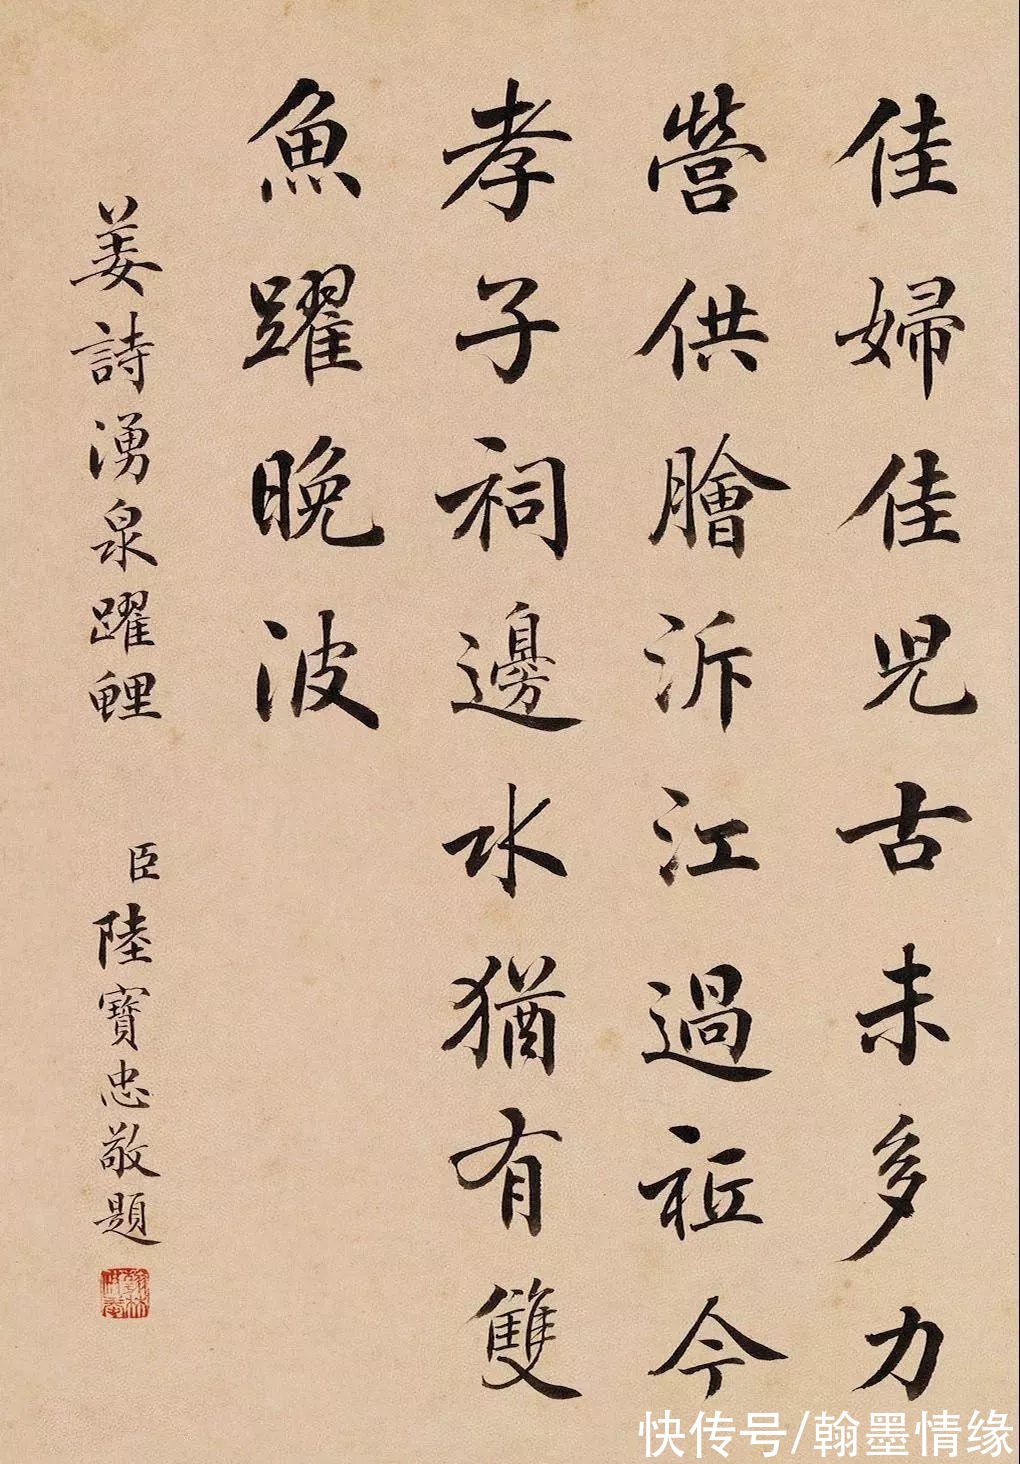 佳婦佳児古未多力
營供膾泝江過祗今
孝子祠邊水猶有雙
魚躍晚波
姜詩湧泉躍鯉
臣陸寶忠敬題
翰林供奉
快传号/翰墨情缘